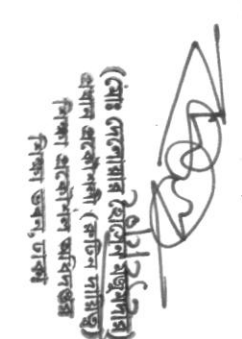 (মোঃ দেলোয়ার হোসেন মজুমদার)
প্রধান প্রকৌশলী (রুটিন দায়িত্ব)
শিক্ষা প্রকৌশল অধিদপ্তর
শিক্ষা ভবন, ঢাকা